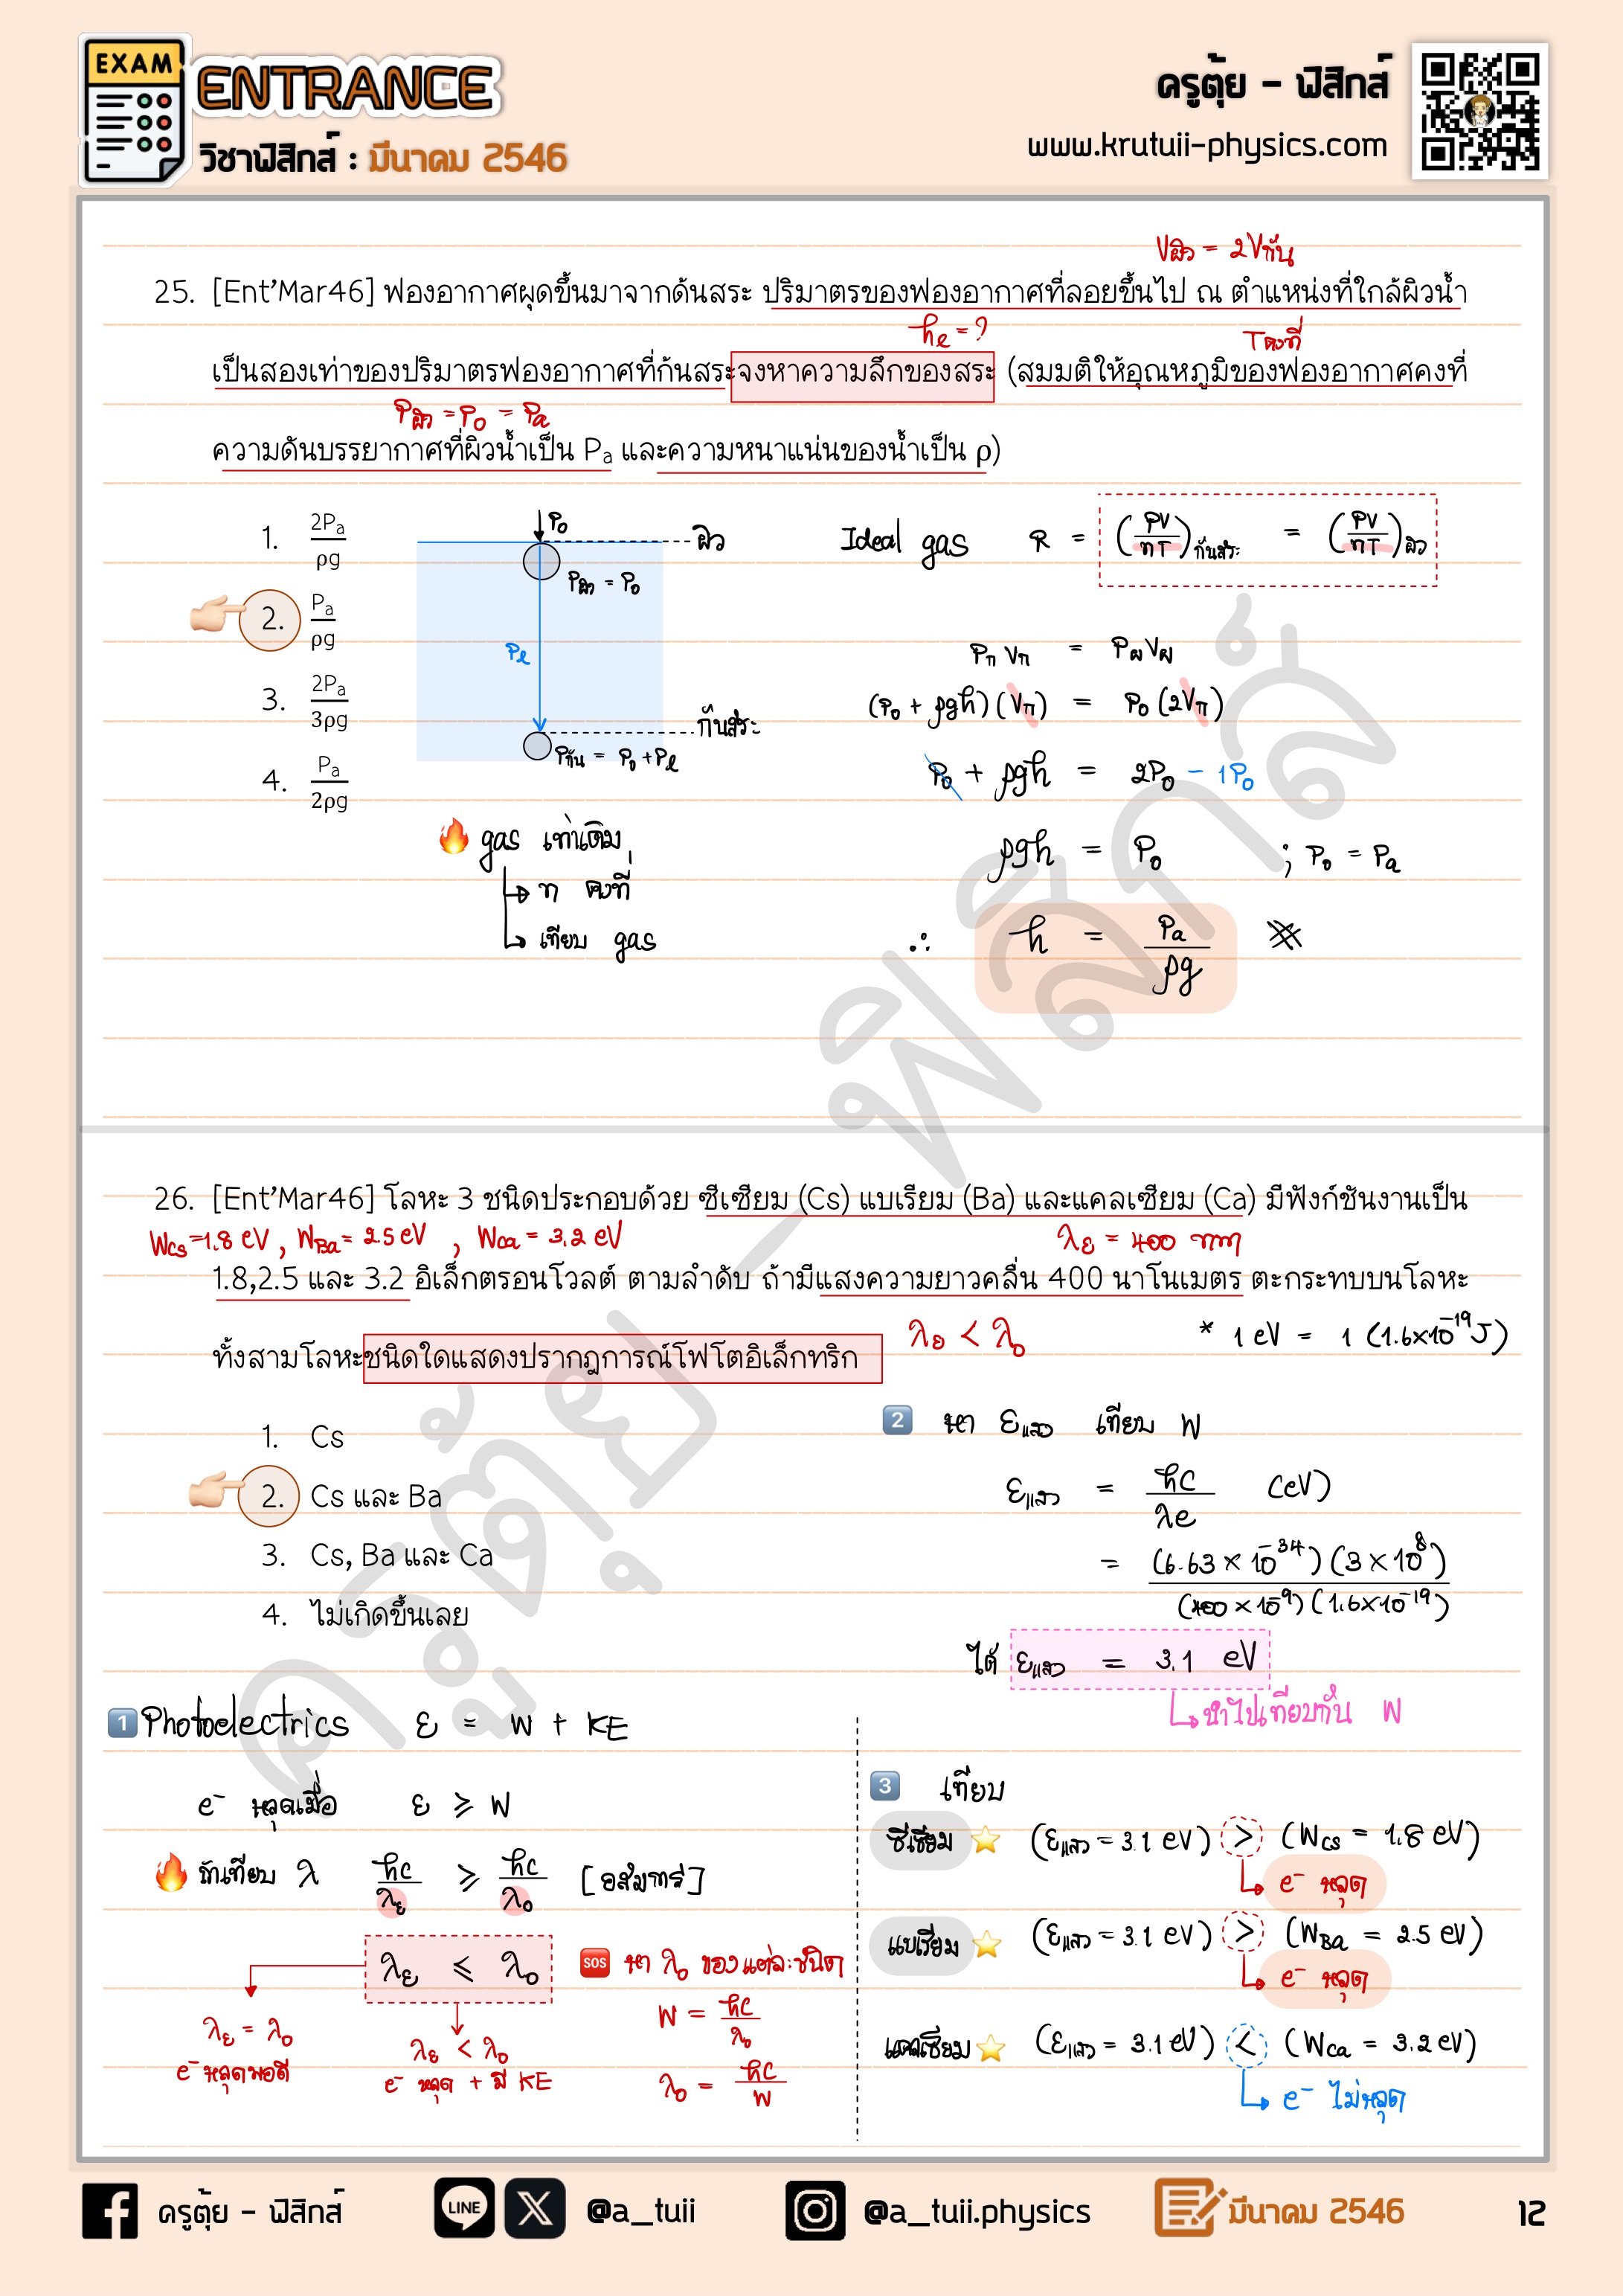 EXAM
ENTRANCE
วิชาฟิสิกส์ : มีนาคม 2546
ครูตุ้ย - ฟิสิกส์
www.krutuii-physics.com
Vผิว = 2Vก้น
25. [Ent'Mar46] ฟองอากาศผุดขึ้นมาจากด้นสระ ปริมาตรของฟองอากาศที่ลอยขึ้นไป ณ ตำแหน่งที่ใกล้ผิวน้ำ
hℓ = ?
T คงที่
เป็นสองเท่าของปริมาตรฟองอากาศที่ก้นสระจงหาความลึกของสระ (สมมติให้อุณหภูมิของฟองอากาศคงที่
Pผิว = P₀ = Pa
ความดันบรรยากาศที่ผิวน้ำเป็น Pa และความหนาแน่นของน้ำเป็น ρ)
1. 2Pa/ρg
2. Pa/ρg
3. 2Pa/3ρg
4. Pa/2ρg
P₀
ผิว
Pผิว = P₀
Pℓ
ก้นสระ
Pก้น = P₀ + Pℓ
🔥 gas เท่าเดิม
↳ n คงที่
↳ เทียบ gas
Ideal gas R = (PV/nT)ก้นสระ = (PV/nT)ผิว
Pก Vก = Pผ Vผ
(P₀ + ρgh)(Vก) = P₀(2Vก)
P₀ + ρgh = 2P₀ - 1P₀
ρgh = P₀ ; P₀ = Pa
∴ h = Pa/ρg
26. [Ent'Mar46] โลหะ 3 ชนิดประกอบด้วย ซีเซียม (Cs) แบเรียม (Ba) และแคลเซียม (Ca) มีฟังก์ชันงานเป็น
Wcs = 1.8 eV , WBa = 2.5 eV , Wca = 3.2 eV
λε = 400 nm
1.8,2.5 และ 3.2 อิเล็กตรอนโวลต์ ตามลำดับ ถ้ามีแสงความยาวคลื่น 400 นาโนเมตร ตะกระทบบนโลหะ
ทั้งสามโลหะชนิดใดแสดงปรากฏการณ์โฟโตอิเล็กทริก
λε < λ₀
* 1 eV = 1 (1.6×10⁻¹⁹ J)
1. Cs
2. Cs และ Ba
3. Cs, Ba และ Ca
4. ไม่เกิดขึ้นเลย
2 หา εแสง เทียบ W
εแสง = hc/λe (eV)
= (6.63 × 10⁻³⁴)(3 × 10⁸)/(400 × 10⁻⁹)(1.6×10⁻¹⁹)
ได้ εแสง = 3.1 eV
↳ นำไปเทียบกับ W
1 Photoelectrics ε = W + KE
e⁻ หลุดเมื่อ ε ⩾ W
🔥 ถ้าเทียบ λ hc/λε ⩾ hc/λ₀ [อสมการ]
λε ⩽ λ₀
λε = λ₀
e⁻ หลุดพอดี
λε < λ₀
e⁻ หลุด + มี KE
SOS หา λ₀ ของแต่ละชนิด
W = hc/λ₀
λ₀ = hc/W
3 เทียบ
ซีเซียม ⭐ (εแสง = 3.1 eV) > (Wcs = 1.8 eV)
↳ e⁻ หลุด
แบเรียม ⭐ (εแสง = 3.1 eV) > (WBa = 2.5 eV)
↳ e⁻ หลุด
แคลเซียม ⭐ (εแสง = 3.1 eV) < (WCa = 3.2 eV)
↳ e⁻ ไม่หลุด
ครูตุ้ย - ฟิสิกส์
ครูตุ้ย - ฟิสิกส์
LINE
@a_tuii
@a_tuii.physics
มีนาคม 2546
12